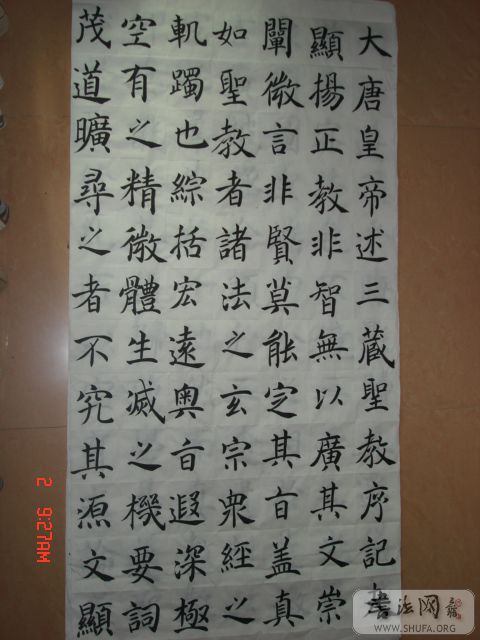 大唐皇帝述三藏聖教序記
顯揚正教非智無以廣其文崇
闡微言非賢莫能定其旨蓋真
如聖教者諸法之玄宗衆經之
軌躅也綜括宏遠奧旨遐深極
空有之精微體生滅之機要詞
茂道曠尋之者不究其源文顯
2 9:27AM
書法网
WWW.SHUFA.ORG